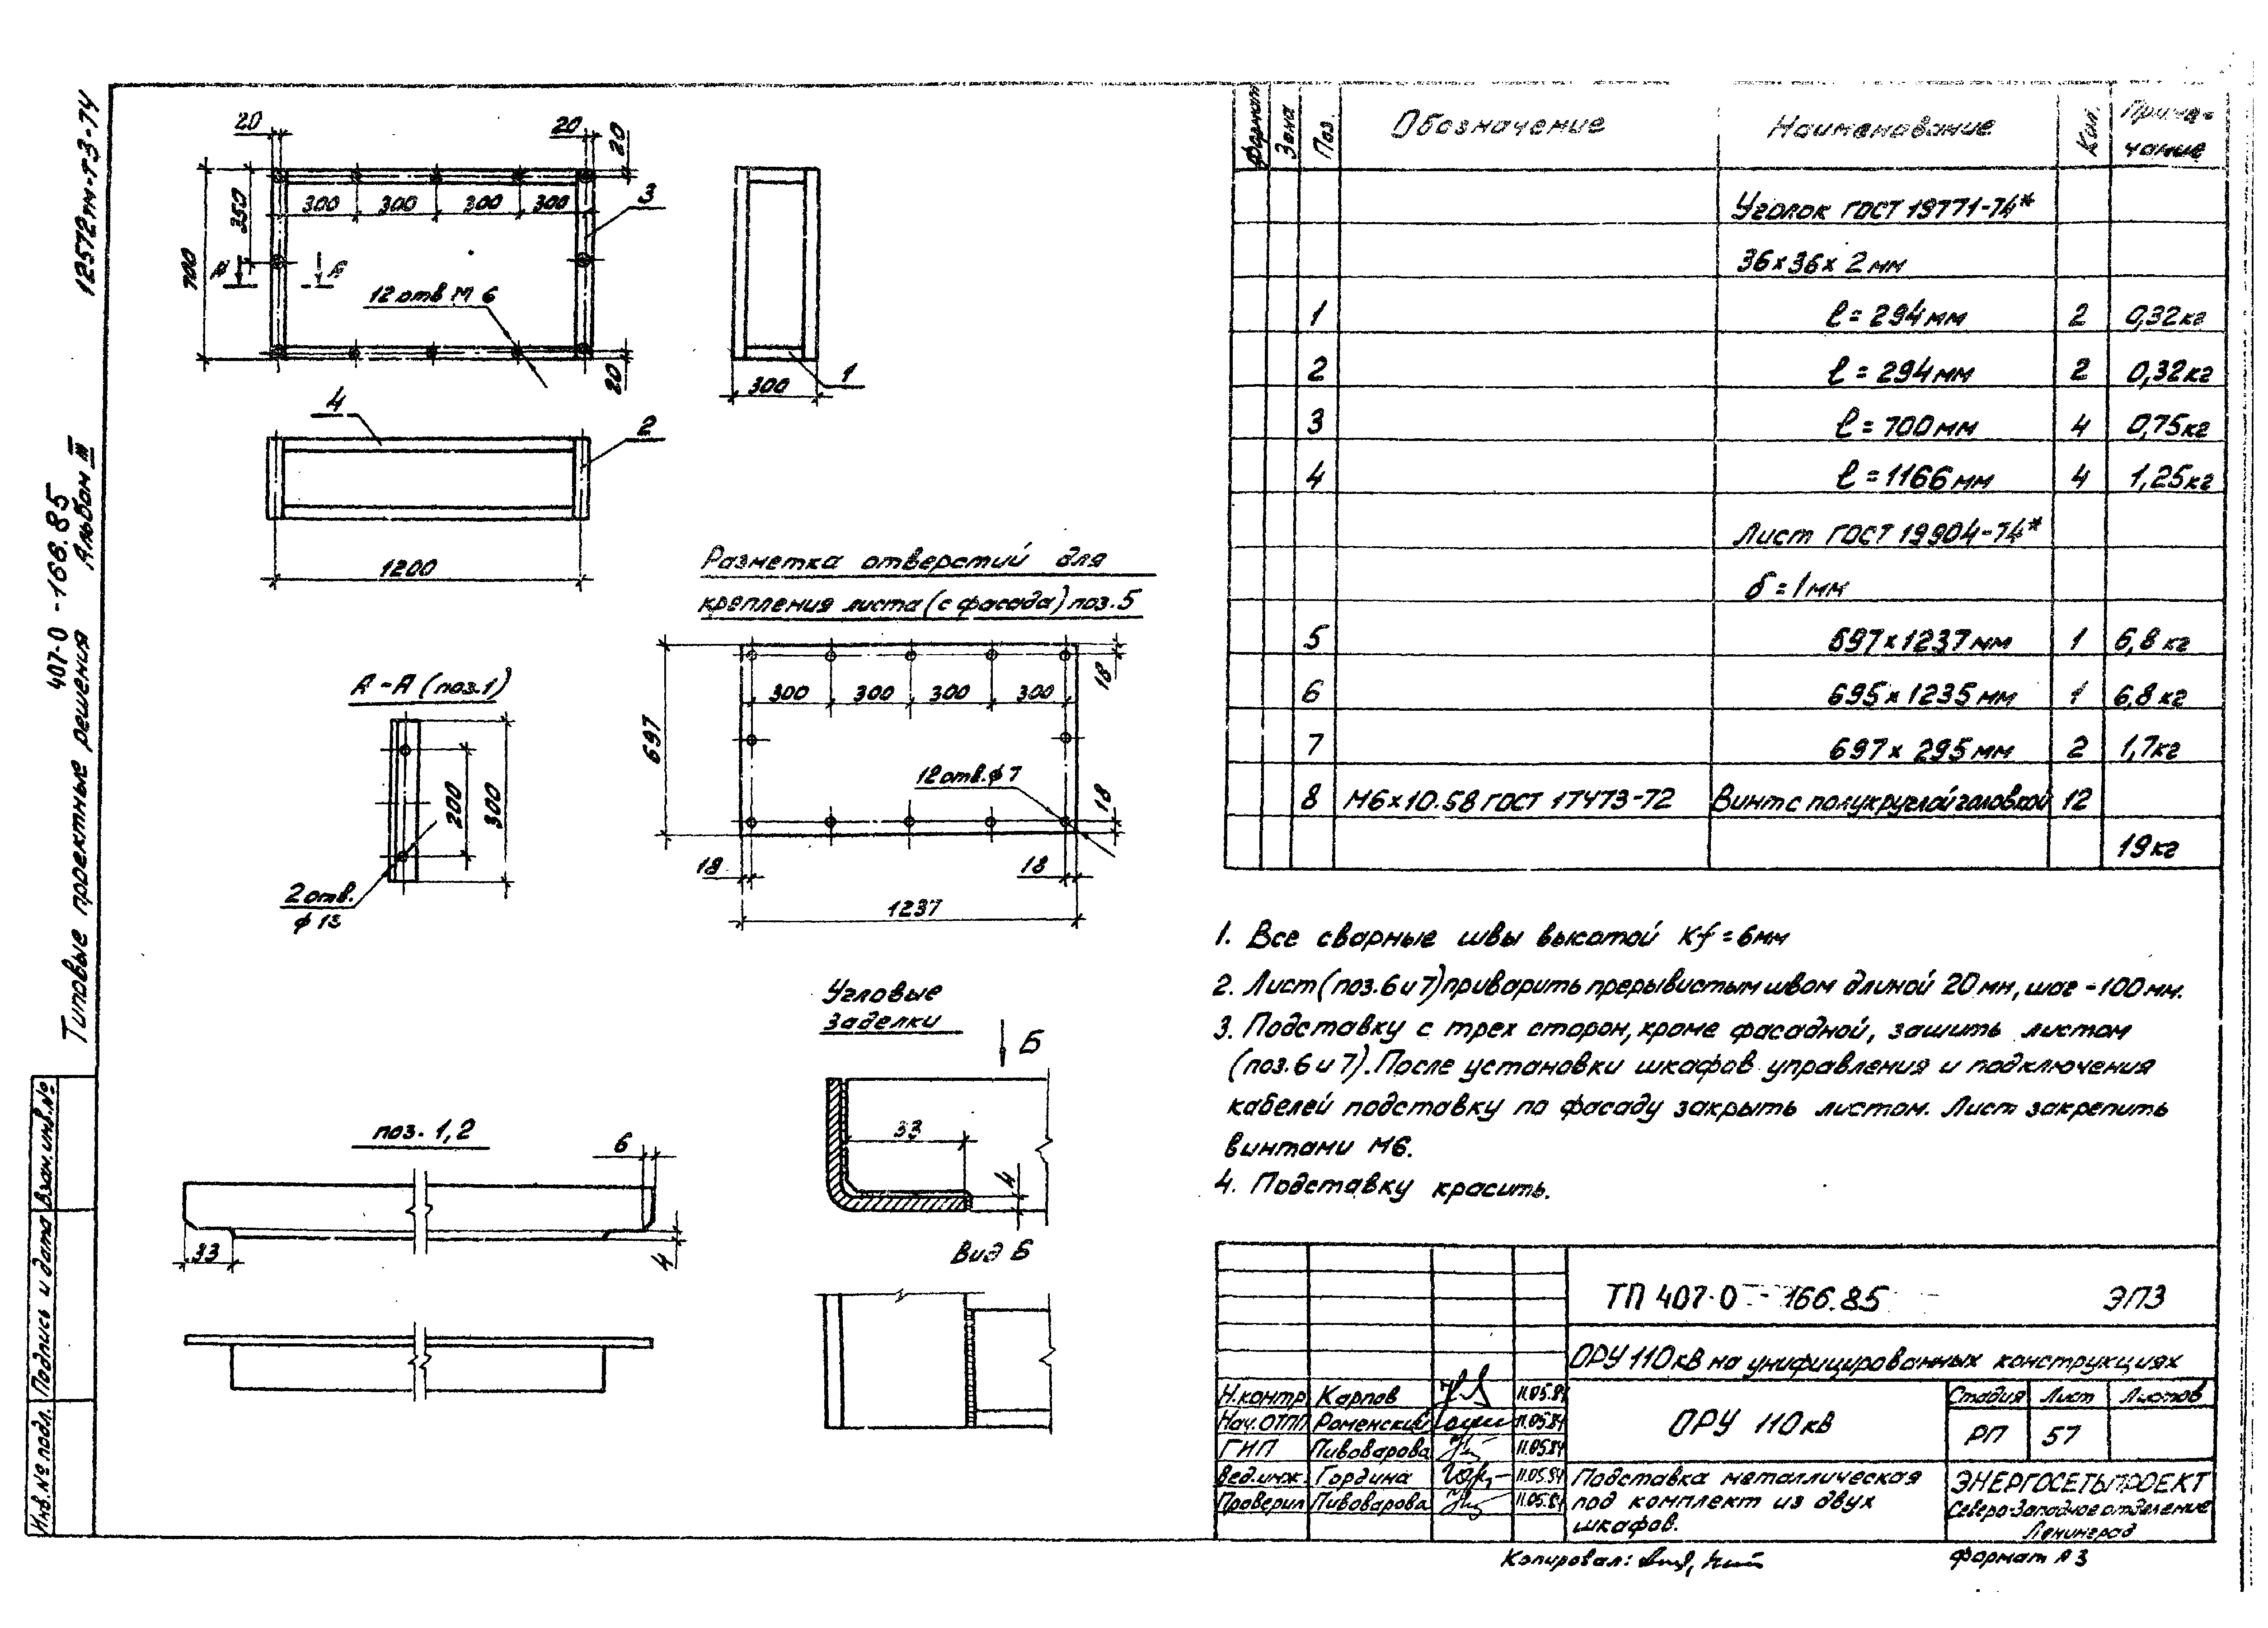 12572тм-т3-74
407-0-166.85
Альбом III
Типовые проектные решения
Взам. инв. №
Подпись и дата
Инв. № подл.
20
20
20
300
300
300
300
3
350
700
А
А
12 отв М 6
20
300
1
4
2
1200
Разметка отверстий для
крепления листа (с фасада) поз. 5
А-А (поз.1)
200
300
2 отв.
ф 13
18
300
300
300
300
697
12 отв. ф 7
18
18
18
1237
Угловые
заделки
Б
33
4
поз. 1,2
6
33
4
Вид Б
Формат
Зона
Поз.
Обозначение
Наименование
Кол.
Приме-
чание
Уголок ГОСТ 19771-74*
36х36х 2 мм
1 ℓ = 294 мм 2 0,32 кг
2 ℓ = 294 мм 2 0,32 кг
3 ℓ = 700 мм 4 0,75 кг
4 ℓ = 1166 мм 4 1,25 кг
Лист ГОСТ 19904-74*
δ = 1 мм
5 697 х 1237 мм 1 6,8 кг
6 695 х 1235 мм 1 6,8 кг
7 697 х 295 мм 2 1,7 кг
8 М6×10.58 ГОСТ 17473-72 Винт с полукруглой головкой 12
19 кг
1. Все сварные швы высотой Kf = 6мм
2. Лист (поз. 6 и 7) приварить прерывистым швом длиной 20 мм, шаг - 100 мм.
3. Подставку с трех сторон, кроме фасадной, зашить листом
(поз. 6 и 7). После установки шкафов управления и подключения
кабелей подставку по фасаду закрыть листом. Лист закрепить
винтами М6.
4. Подставку красить.
ТП 407-0-166.85 ЭПЗ
ОРУ 110 кВ на унифицированных конструкциях
Н.контр Карпов 11.05.84
Нач. ОТПП Роменский 11.05.84
ГИП Пивоварова 11.05.84
Вед.инж. Гордина 11.05.84
Проверил Пивоварова 11.05.84
ОРУ 110 кВ
Стадия Лист Листов
РП 57
Подставка металлическая
под комплект из двух
шкафов.
ЭНЕРГОСЕТЬПРОЕКТ
Северо-Западное отделение
Ленинград
Копировал:
Формат А3